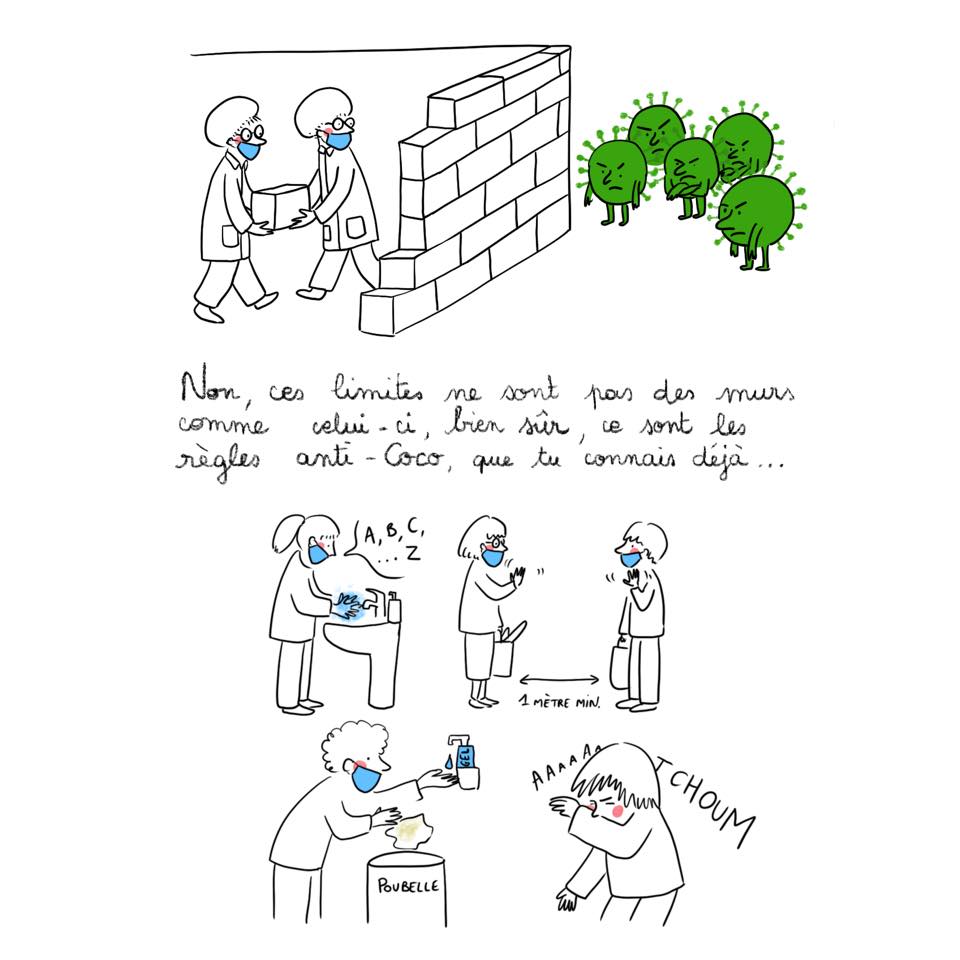 Non, ces limites ne sont pas des murs
comme celui-ci, bien sûr, ce sont les
règles anti-Coco, que tu connais déjà...
A, B, C,
... Z
1 MÈTRE MIN.
GEL
POUBELLE
AAAAAA
TCHOUM